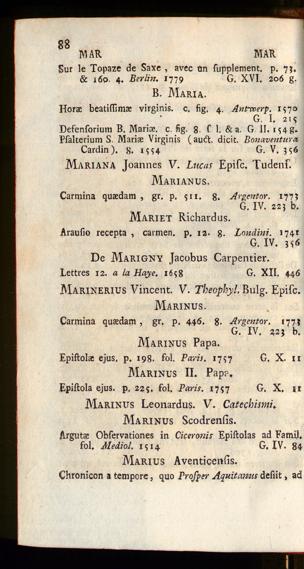 88
MAR MAR
Sur le Topaze de Saxe , avec un supplement. p. 73.
& 160. 4. Berlin. 1779 G. XVI. 206 g.
B. MARIA.
Horæ beatissimæ virginis. c. fig. 4. Antwerp. 1570
G. I. 215
Defensorium B. Mariæ. c. fig. 8. s l. & a. G II. 154 g.
Psalterium S. Mariæ Virginis (auct. dicit. Bonaventura
Cardin). 8. 1554 G. V. 356
MARIANA Joannes V. Lucas Episc. Tudens.
MARIANUS.
Carmina quædam, gr. p. 511. 8. Argentor. 1773
G. IV. 223 b.
MARIET Richardus.
Arausio recepta, carmen. p. 12. 8. Londini. 1741
G. IV. 356
De MARIGNY Jacobus Carpentier.
Lettres 12. a la Haye. 1658 G. XII. 446
MARINERIUS Vincent. V. Theophyl. Bulg. Episc.
MARINUS.
Carmina quædam, gr. p. 446. 8. Argentor. 1773
G. IV. 223 b.
MARINUS Papa.
Epistolæ ejus. p. 198. fol. Paris. 1757 G. X. 11
MARINUS II. Papa.
Epistola ejus. p. 225. fol. Paris. 1757 G. X. 11
MARINUS Leonardus. V. Catechismi.
MARINUS Scodrensis.
Argutæ Observationes in Ciceronis Epistolas ad Famil.
fol. Mediol. 1514 G. IV. 84
MARIUS Aventicensis.
Chronicon a tempore, quo Prosper Aquitanus desiit, ad